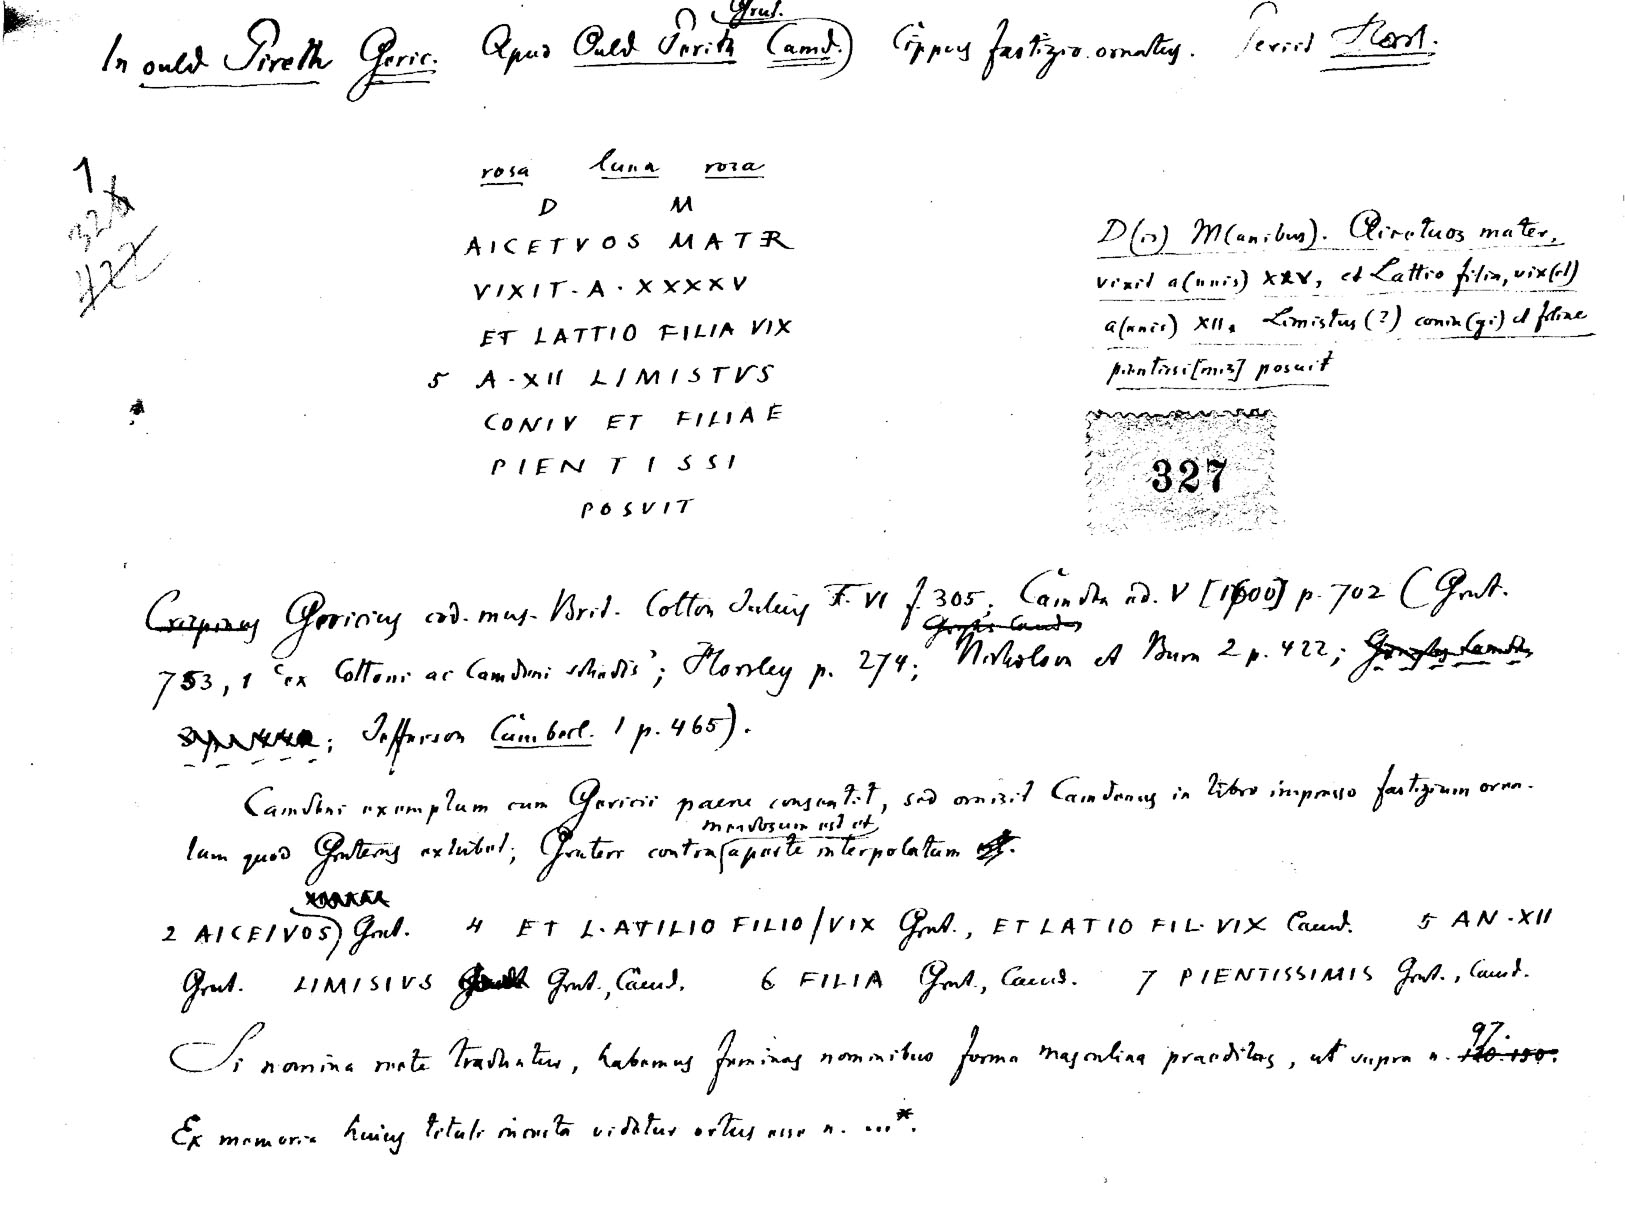 Grut.
In ould Pireth Geric. Apud Ould Perith Camd.) Cippus fastigio ornatus. Periit Horsl.
rosa luna rosa
1
D M
328
AICETVOS MATER
D(is) M(anibus). Aicetuos mater,
422
VIXIT · A · XXXXV
vixit a(nnis) XXXV, et Lattio filia, vix(it)
ET LATTIO FILIA VIX
a(nnis) XII, Limistus (?) coniu(gi) et filiae
5 A · XII LIMISTVS
pientissi[mis] posuit
CONIV ET FILIAE
PIENTISSI
327
POSVIT
Gericius cod. mus. Brit. Cotton Julius F. VI f. 305; Camden ed. V [1600] p. 702 (Grut.
753, 1 'ex Cottoni ac Camdeni schedis'; Horsley p. 274; Nicholson et Burn 2 p. 422;
; Jefferson Cumberl. 1 p. 465).
Camdeni exemplum cum Gericii paene consentit, sed omisit Camdenus in libro impresso fastigium orna-
mendosum est et
tum quod Gruterus exhibet; Gruteri contra aperte interpolatum
2 AICEIVOS) Grut. 4 ET L·ATILIO FILIO/VIX Grut., ET LATIO FIL·VIX Camd. 5 AN·XII
Grut. LIMISIVS Grut., Camd. 6 FILIA Grut., Camd. 7 PIENTISSIMIS Grut., Camd.
97.
Si nomina recte traduntur, habemus feminas nominibus forma masculina praeditas, ut supra n. 120. 150.
Ex memoria huius tituli incerta videtur ortus esse n. ...*.